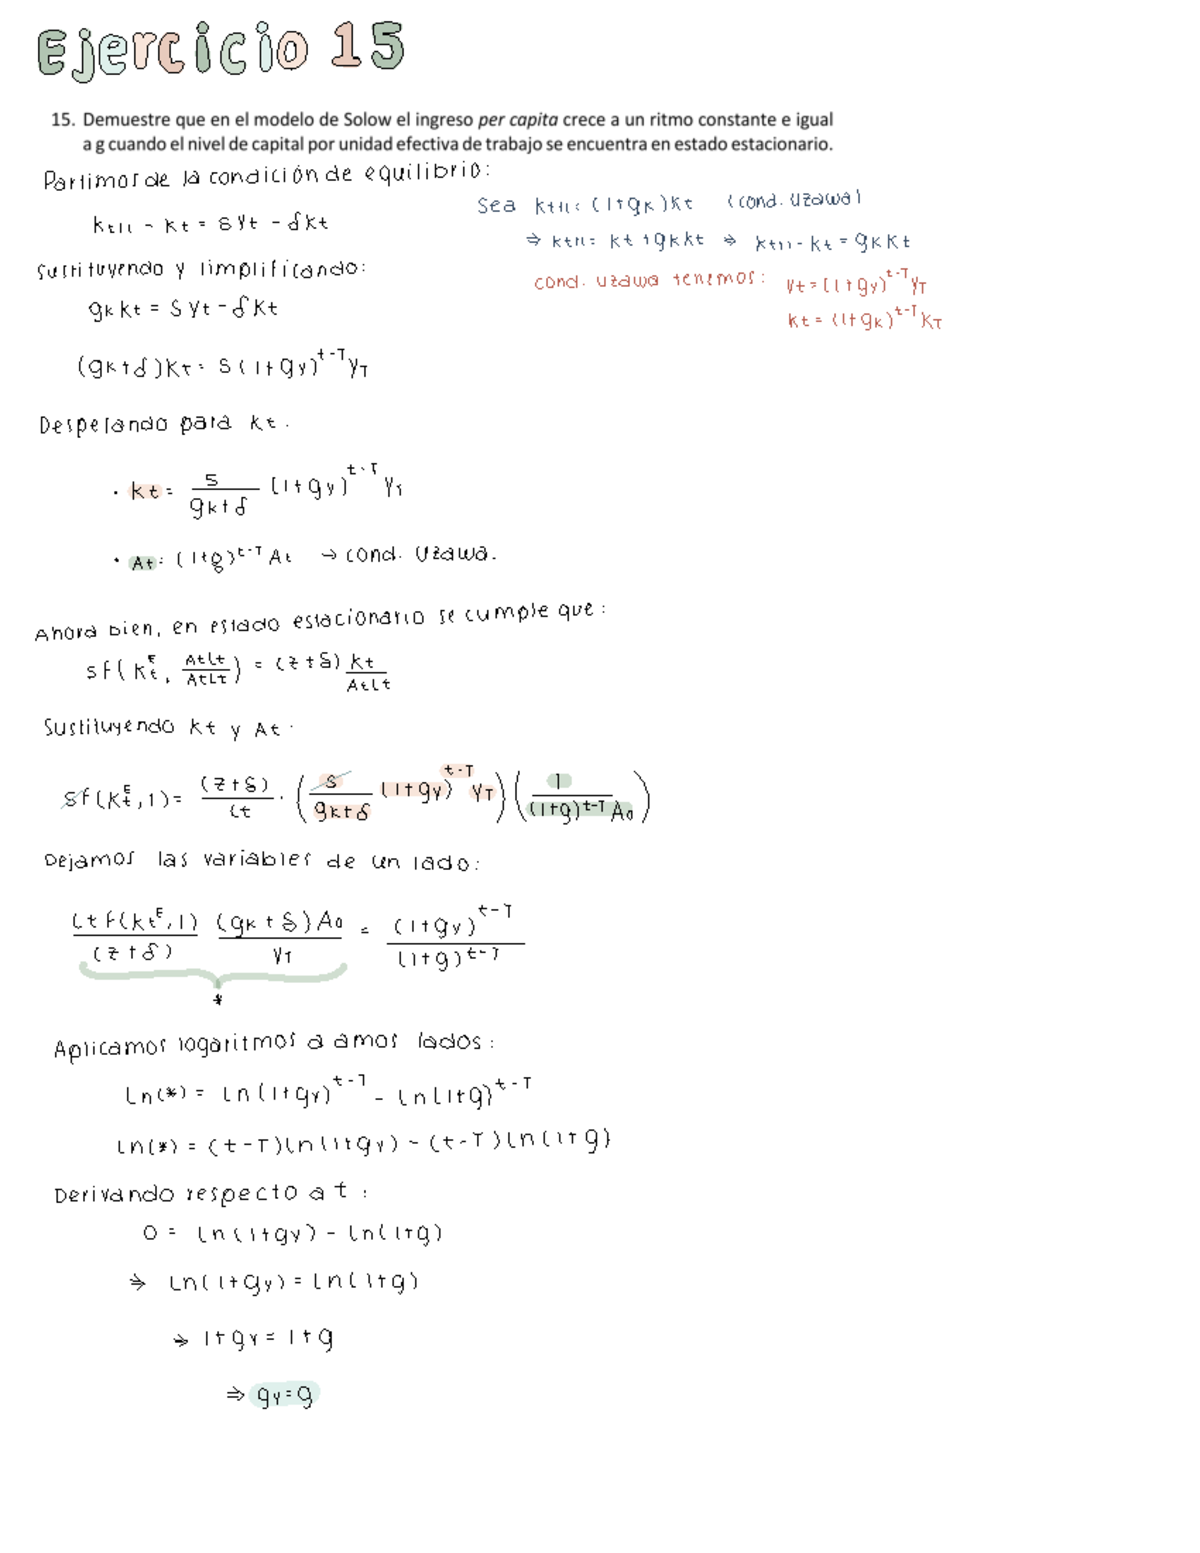 Ejercicio 15
15. Demuestre que en el modelo de Solow el ingreso per capita crece a un ritmo constante e igual
a g cuando el nivel de capital por unidad efectiva de trabajo se encuentra en estado estacionario.
Partimos de la condición de equilibrio:
Kt+1 - Kt = SYt - δKt
Sea Kt+1 = (1+gK)Kt (cond. Uzawa)
⇒ Kt+1 = Kt + gKKt ⇒ Kt+1 - Kt = gKKt
Sustituyendo y simplificando:
gKKt = SYt - δKt
cond. Uzawa tenemos: Yt = (1+gY)^t-T YT
Kt = (1+gK)^t-T KT
(gK+δ)Kt = S(1+gY)^t-T YT
Despejando para Kt.
• Kt = S/(gK+δ) (1+gY)^t-T YT
• At: (1+g)^t-T At → cond. Uzawa.
Ahora bien, en estado estacionario se cumple que:
sf(Kt^E, AtLt/AtLt) = (z+δ) Kt/AtLt
Sustituyendo Kt y At.
sf(Kt^E, 1) = (z+δ)/Lt · (S/(gK+δ) (1+gY)^t-T YT)(1/((1+g)^t-T A0))
Dejamos las variables de un lado:
Lt f(Kt^E, 1)/(z+δ) (gK+δ)A0/YT = (1+gY)^t-T/(1+g)^t-T
*
Aplicamos logaritmos a amos lados:
Ln(*) = Ln(1+gY)^t-T - Ln(1+g)^t-T
Ln(*) = (t-T)Ln(1+gY) - (t-T)Ln(1+g)
Derivando respecto a t:
0 = Ln(1+gY) - Ln(1+g)
⇒ Ln(1+gY) = Ln(1+g)
⇒ 1+gY = 1+g
⇒ gY = g